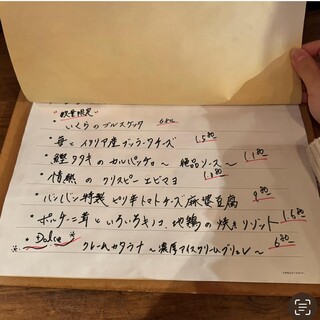 "数量限定"
・いくらのブルスケッタ 680
・苺とイタリア産ブッラータチーズ 1,580
・鰹タタキのカルパッチョ 〜絶品ソース〜 1,180
・情熱のクリスピーエビマヨ 1,080
・バンバン特製 ピリ辛トマトチーズ麻婆豆腐 980
・ポルチーニ茸といろいろキノコ、地鶏の焼きリゾット 1,680
・Dolce
クレームカタラナ 〜濃厚アイスクリームブリュレ〜 680